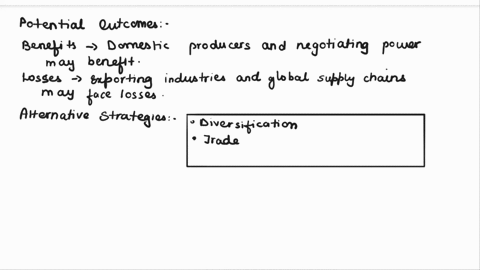 Potential Outcomes:-
Benefits → Domestic producers and negotiating power
may benefit.
Losses → Exporting industries and global supply chains
may face losses.
Alternative Strategies:-
• Diversification
• Trade